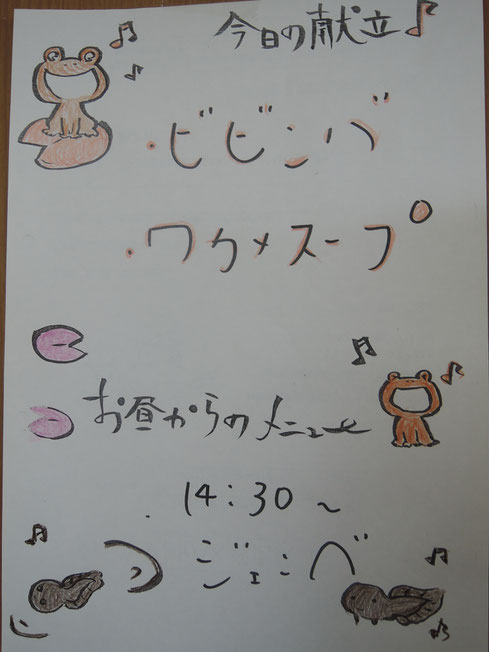 今日の献立♪
・ビビンバ
・ワカメスープ
お昼からのメニュー
14:30～
ジェンベ